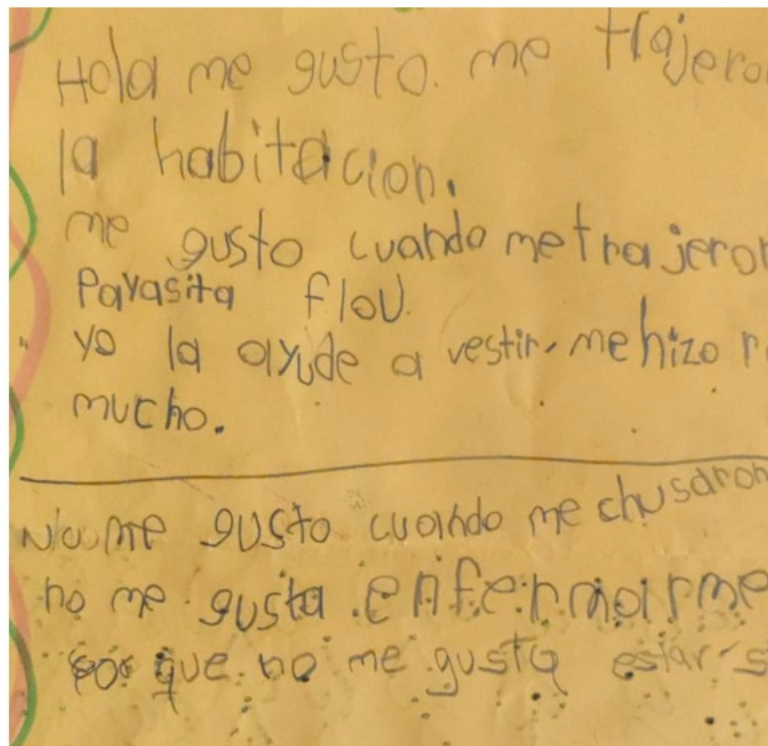 Hola me gusto. me trajero
la habitacion.
me gusto cuando me trajeron
Payasita flou.
yo la ayude a vestir, me hizo r
mucho.
No me gusto cuando me chusaron
no me gusta enfermarme
por que no me gusta estar s